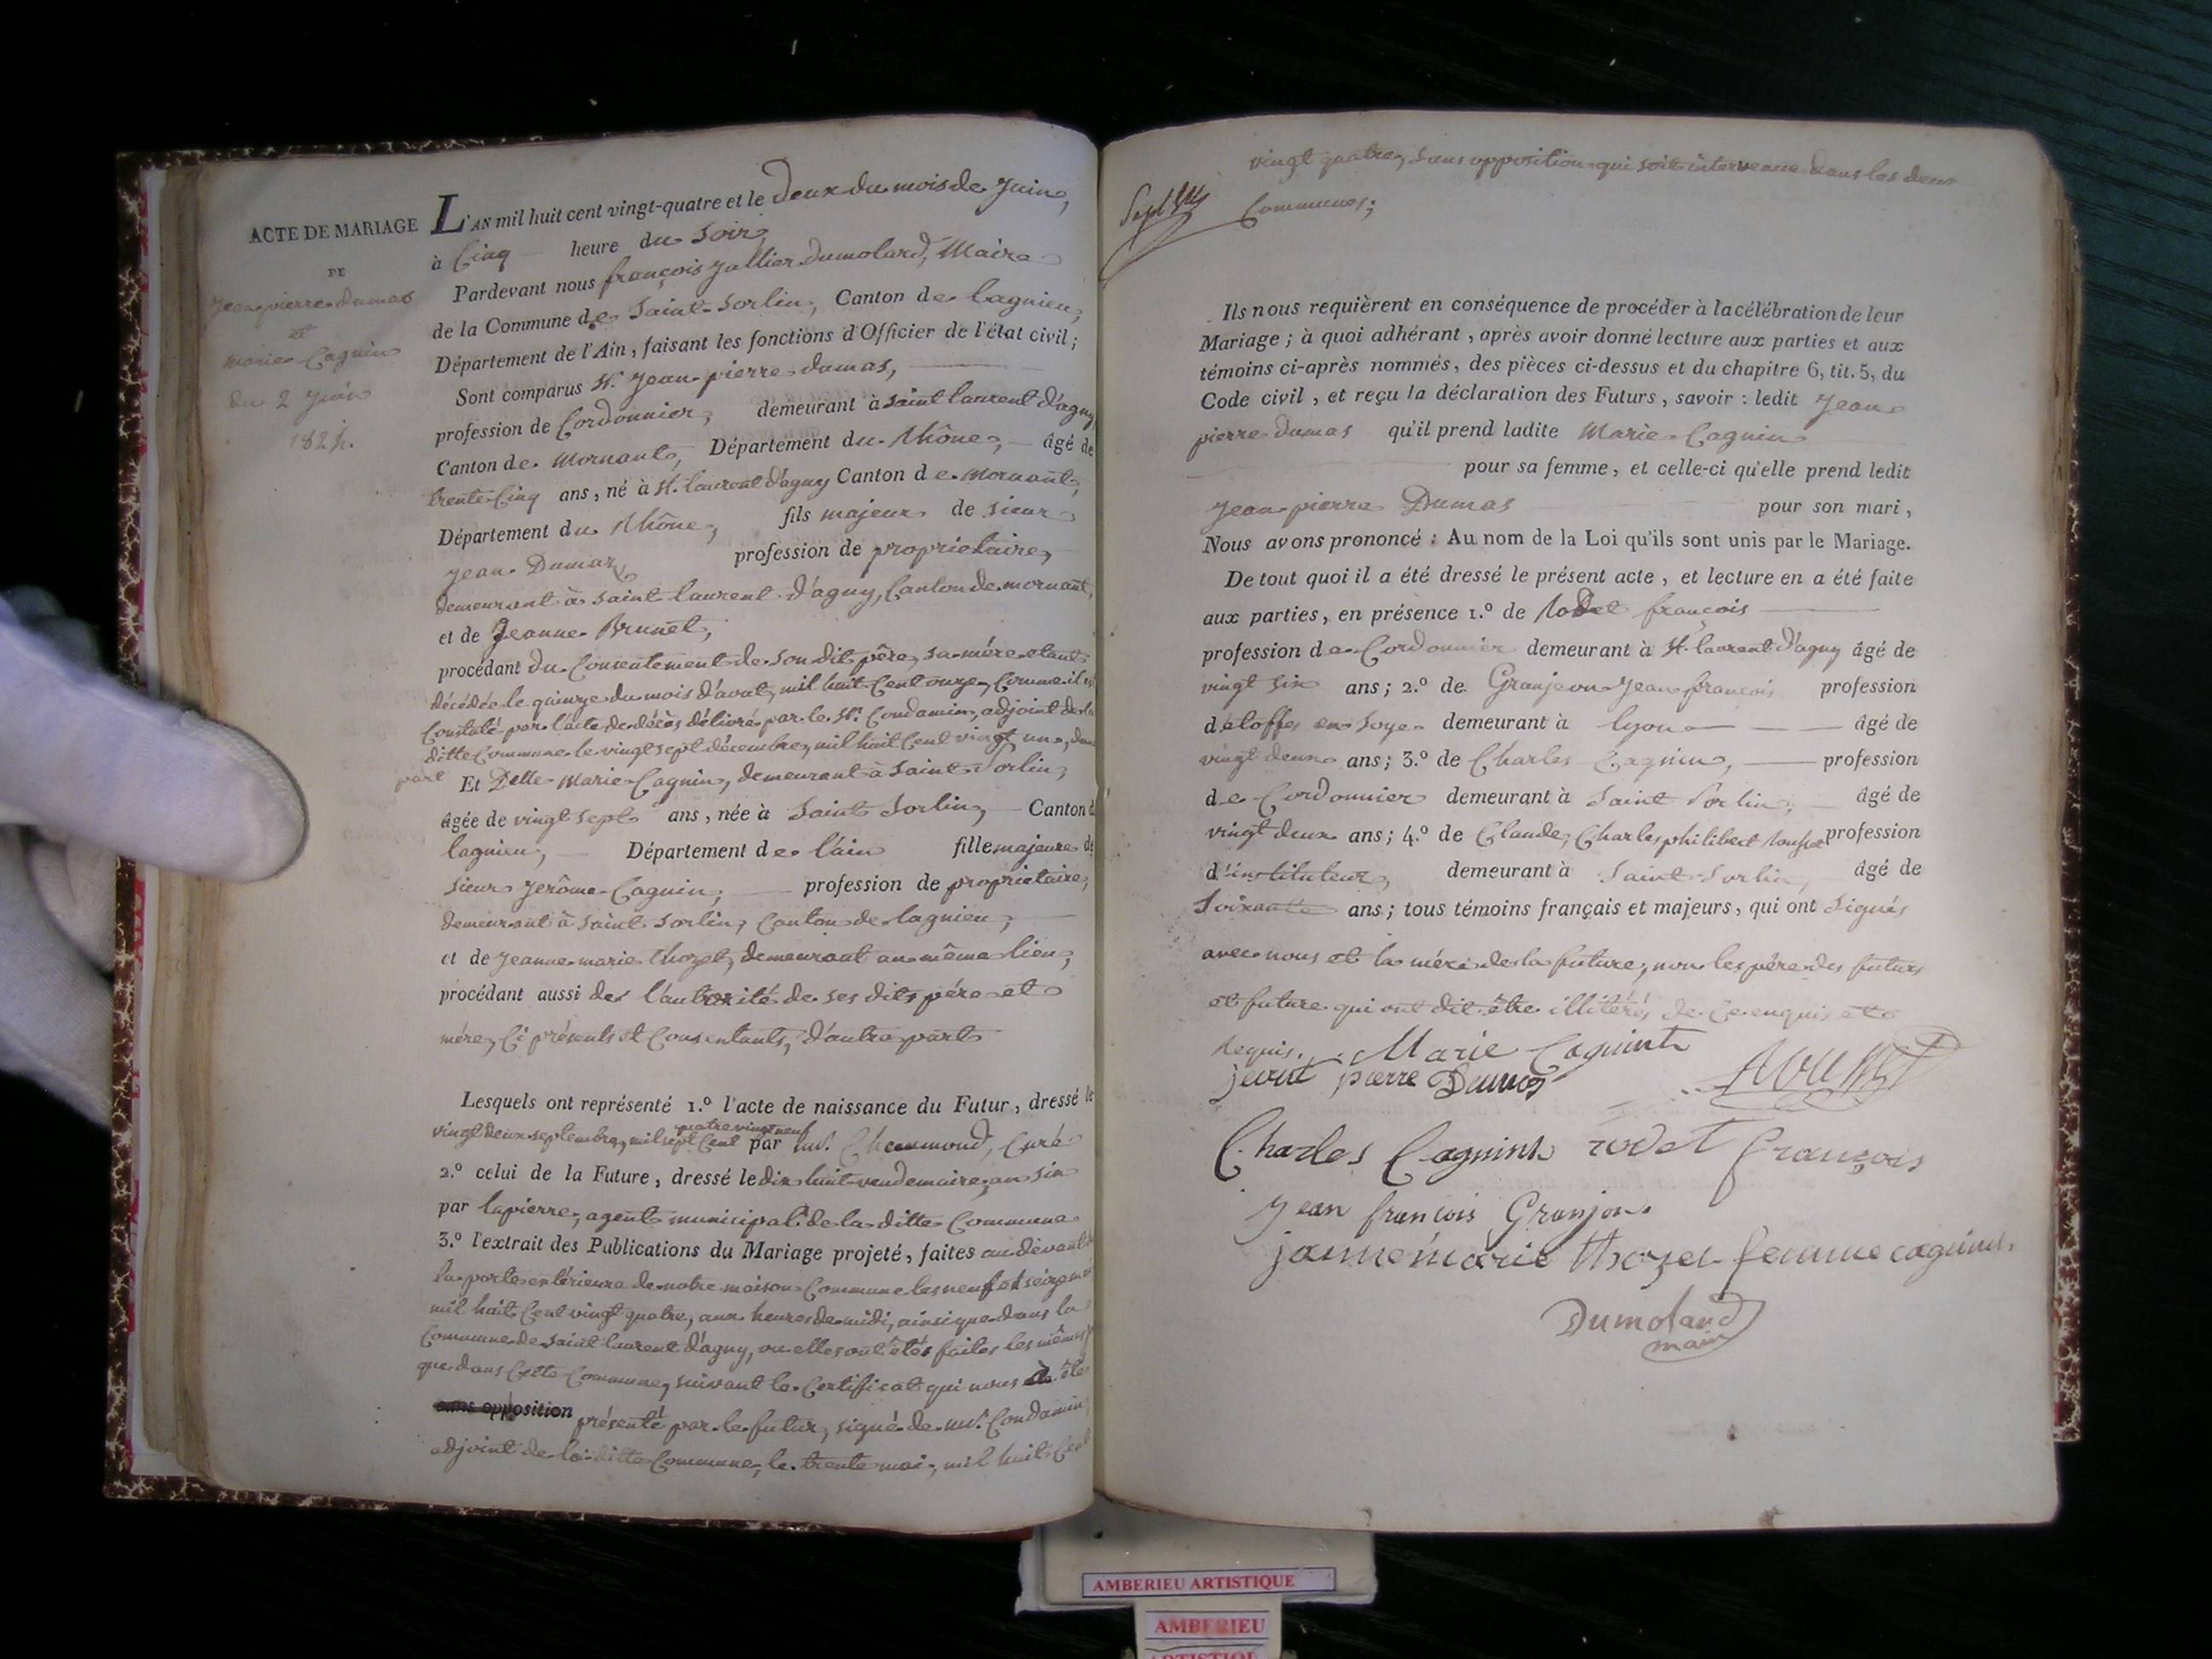 ACTE DE MARIAGE
DE
Jean pierre dumas
et
marie Cagnin
du 2 Juin
1824.
L'AN mil huit cent vingt-quatre et le deux du mois de Juin,
à Cinq heure du Soir,
Pardevant nous françois Jallier Dumolard, Maire
de la Commune de Saint-Sorlin, Canton de Lagnieu,
Département de l'Ain, faisant les fonctions d'Officier de l'état civil;
Sont comparus Sr. Jean-pierre dumas,
profession de Cordonnier, demeurant à Saint laurent d'agny
Canton de Mornant, Département du Rhône, âgé de
trente Cinq ans, né à St. laurent d'agny Canton de Mornant,
Département du Rhône, fils majeur de Sieur
Jean Dumas profession de proprietaire,
demeurant à Saint laurent d'agny, Canton de mornant,
et de Jeanne Brunet,
procédant du Consentement de son dit père, sa mère etant
décédée le quinze du mois d'avut, mil huit Cent onze, Comme il est
Constaté par l'acte de décès délivré par le Sr. Condamin, adjoint de la
ditte Commune le vingt sept décembre, mil huit Cent vingt un, d'une
part
Et Delle Marie Cagnin, demeurant à Saint-Sorlin,
âgée de vingt sept ans, née à Saint Sorlin, Canton d
lagnieu, Département de l'ain fille majeure de
Sieur Jerôme Cagnin, profession de proprietaire,
demeurant à Saint Sorlin, Canton de lagnieu,
et de Jeanne marie thozet, demeurant au même lieu,
procédant aussi de l'autorité de ses dits père et
mère, Ci présents et Consentants, d'autre part
Lesquels ont représenté 1.º l'acte de naissance du Futur, dressé le
quatre vingt neuf
vingt deux septembre, mil sept Cent par mr. Curé
2.º celui de la Future, dressé le dix huit vendemiaire, an six
par lapierre, agent municipal de la ditte Commune
3.º l'extrait des Publications du Mariage projeté, faites au devant de
la porte extérieure de notre maison Commune les neuf et seize mai
mil huit Cent vingt quatre, aux heures de midi, ainsi que dans la
Commune de Saint laurent d'agny, ou elles ont étés faites les mêmes
que dans Cette Commune, suivant le Certificat qui nous a été
sans opposition présenté par le futur, signé de mr. Condamin
adjoint de la ditte Commune, le trente mai, mil huit Cent
vingt quatre, sans opposition qui soit intervenue dans les deux
Communes;
Ils nous requièrent en conséquence de procéder à la célébration de leur
Mariage; à quoi adhérant, après avoir donné lecture aux parties et aux
témoins ci-après nommés, des pièces ci-dessus et du chapitre 6, tit. 5, du
Code civil, et reçu la déclaration des Futurs, savoir: ledit Jean
pierre dumas qu'il prend ladite Marie Cagnin
pour sa femme, et celle-ci qu'elle prend ledit
Jean pierre Dumas pour son mari,
Nous avons prononcé: Au nom de la Loi qu'ils sont unis par le Mariage.
De tout quoi il a été dressé le présent acte, et lecture en a été faite
aux parties, en présence 1.º de Rodet françois
profession de Cordonnier demeurant à St. laurent d'agny âgé de
vingt six ans; 2.º de Granjeon Jean francois profession
d'étoffes en Soye demeurant à lyon âgé de
vingt deux ans; 3.º de Charles Cagnin, profession
de Cordonnier demeurant à Saint Sorlin, âgé de
vingt deux ans; 4.º de Claude, Charles philibert profession
d'instituteur, demeurant à Saint-Sorlin, âgé de
Soixante ans; tous témoins français et majeurs, qui ont Signés
avec nous et la mère de la future, non les père des futurs
et future qui ont dit être illitérés de Ce enquis et
requis. Marie Caguint
pierre Dumas
Charles Cagnint rodet françois
Jean francois Granjon
jannemarie thozet femme cagnint
Dumolard
maire
AMBERIEU ARTISTIQUE
AMBERIEU
ARTISTIQUE